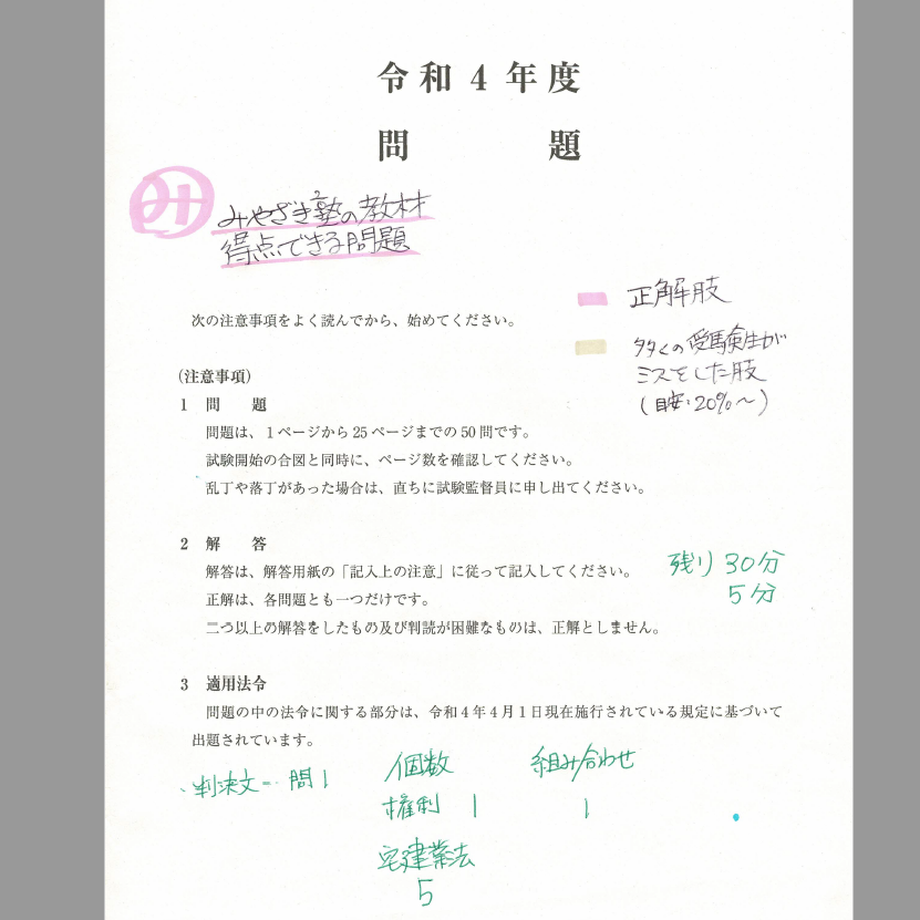 令和4年度
問題
み
みやざき塾の教材
得点できる問題
正解肢
次の注意事項をよく読んでから、始めてください。
多くの受験生が
ミスをした肢
(目安:20%〜)
(注意事項)
1 問題
問題は、1ページから25ページまでの50問です。
試験開始の合図と同時に、ページ数を確認してください。
乱丁や落丁があった場合は、直ちに試験監督員に申し出てください。
2 解答
解答は、解答用紙の「記入上の注意」に従って記入してください。
残り30分
5分
正解は、各問題とも一つだけです。
二つ以上の解答をしたもの及び判読が困難なものは、正解としません。
3 適用法令
問題の中の法令に関する部分は、令和4年4月1日現在施行されている規定に基づいて
出題されています。
判決文=問1
個数
権利 1
宅建業法
5
組み合わせ
1